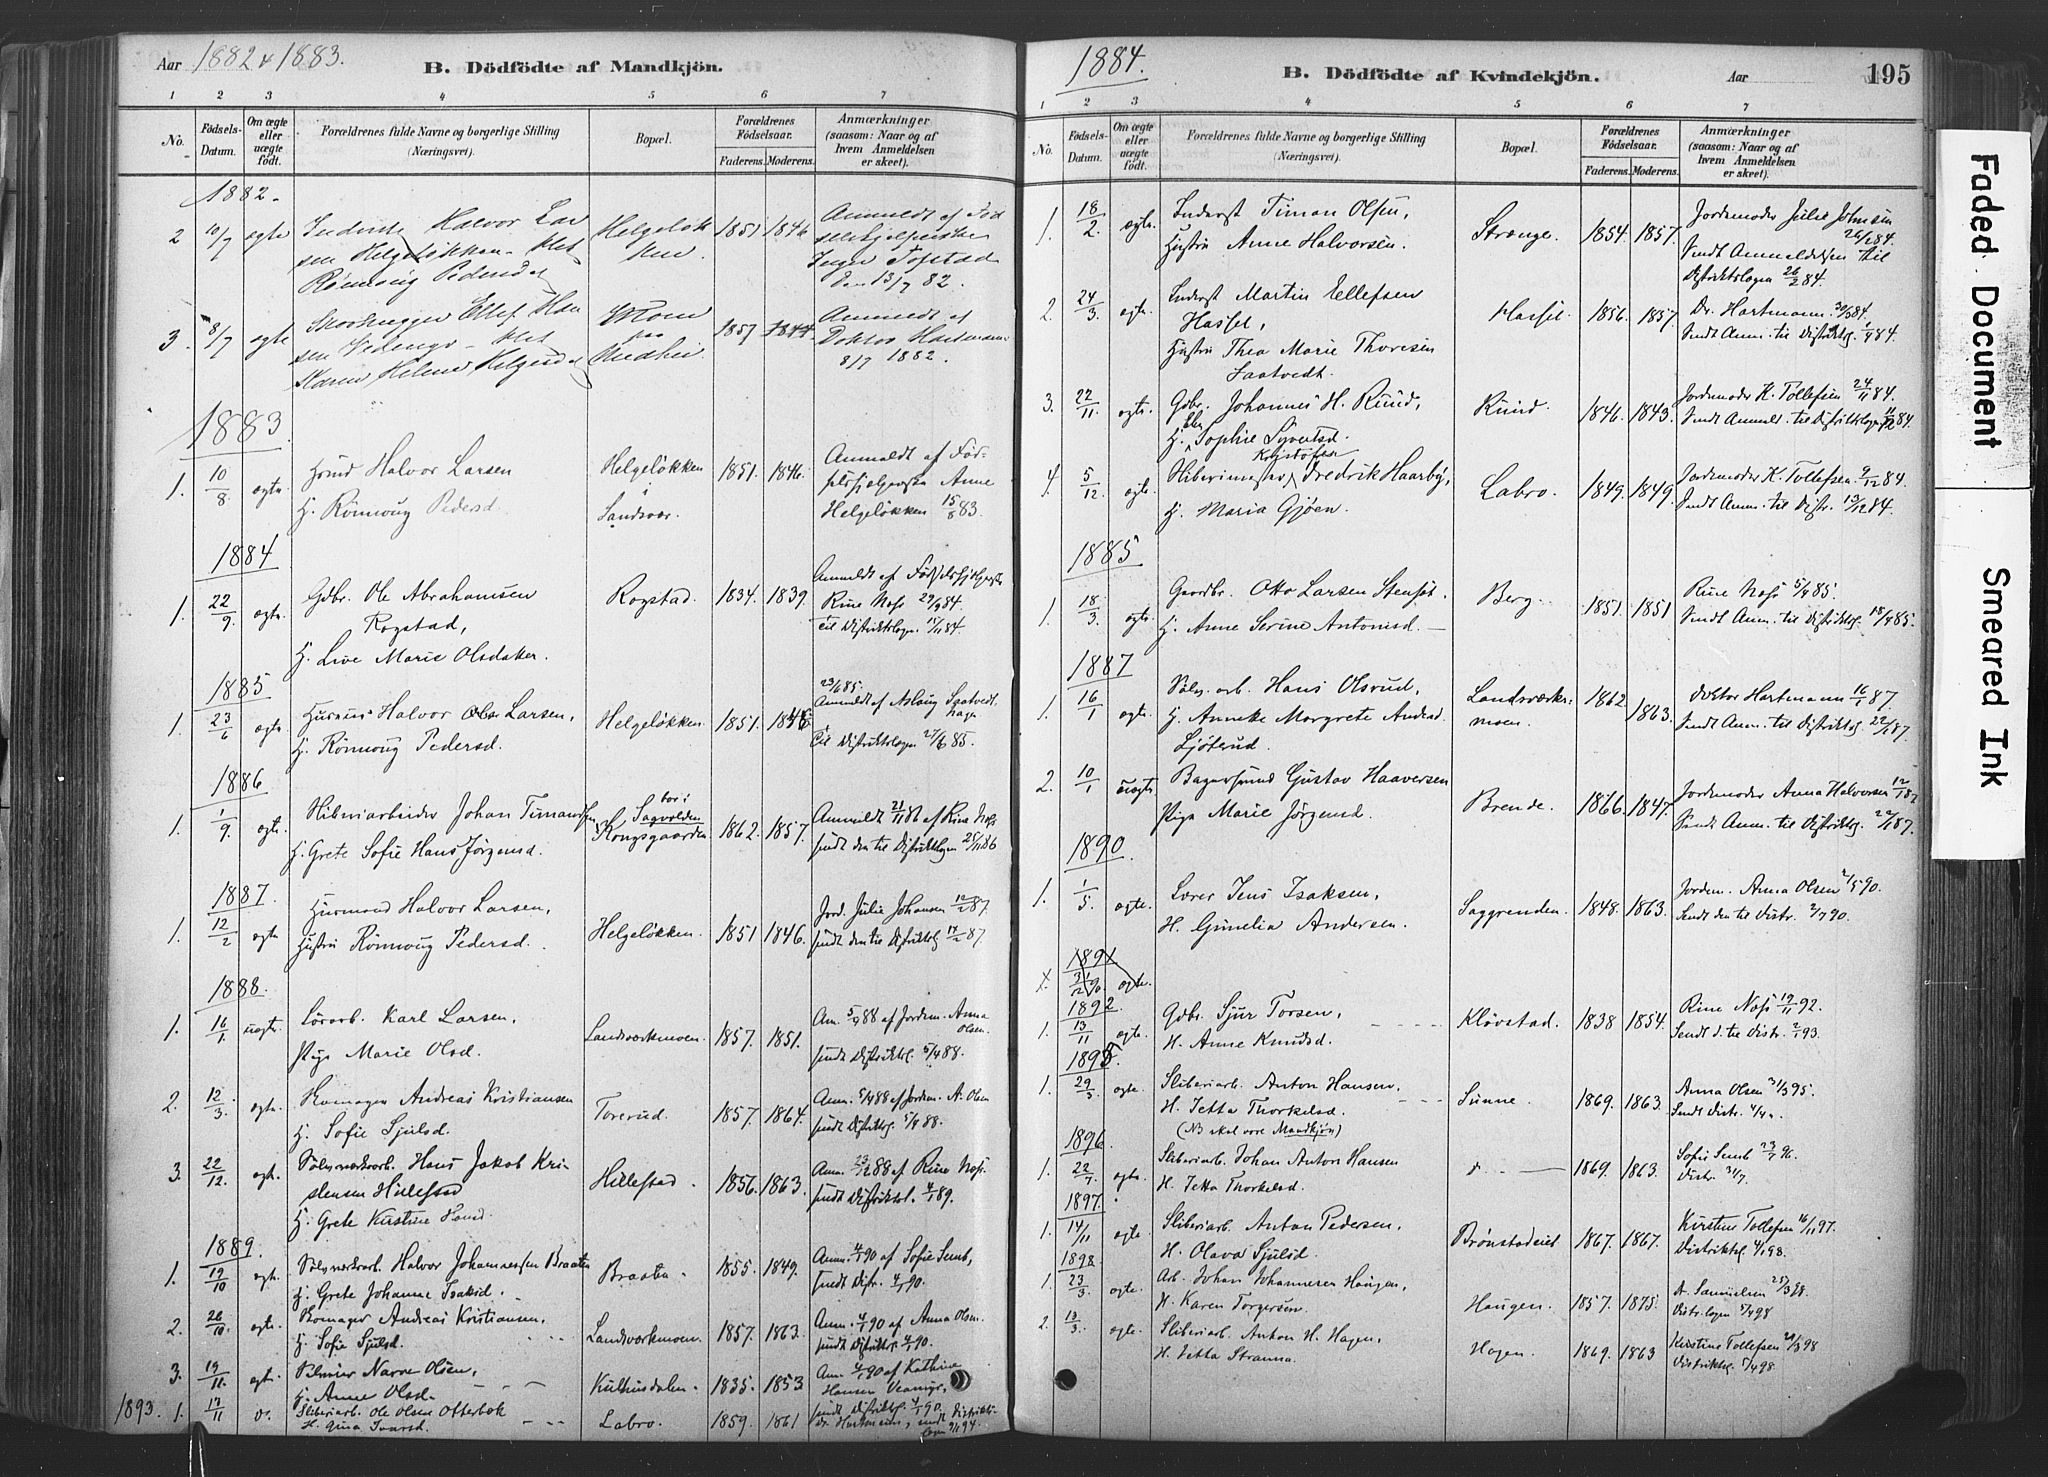 Aar 1882 & 1883.
B. Dödfödte af Mandkjön.
1 2 3 4 5 6 7
No. Födsels-Datum. Om ægte eller uægte födt. Forældrenes fulde Navne og borgerlige Stilling (Næringsvei). Bopæl. Forældrenes Födselsaar. Faderens. Moderens. Anmærkninger (saasom: Naar og af hvem Anmeldelsen er skeet).
1882.
2 10/7 ægte Halvor Lar Helgeløk 1851 1846 Anmeldt af Fød
sen Helgeløkken ken selshjelperske
Rønnoug Pedersd. Inger Tofstad
den 13/7 82.
3. 8/7 ægte Skovhugger Ellef Han 1857 1844 Anmeldt af
sen Doktor Hartmann
Karen Helene Helgesd. 8/7 1882.
1883
1. 10/8 ægte Halvor Larsen Helgeløkken 1851. 1846. Anmeldt af Fød-
H. Rønnoug Pedersd. i selshjelperske Anne
Landsvær. Helgeløkken 15/8 83.
1884
1. 22/9 ægte Gdbr. Ole Abrahamsen Rogstad. 1834. 1839. Anmeldt af Fødselshjelperske
Rogstad, Rine Moss 29/9 84.
H. Live Marie Olsdatter. til Distriktslægen 15/11 84.
1885
1. 23/6 ægte Husmd Halvor Larsen, Helgeløkken. 1851. 1846 23/6 85. Anmeldt af Aslaug Saatvedt
H. Rønnoug Pedersd. til Distriktslægen 27/6 85.
1886
1. 1/9 ægte Sliberiarbeider Johan Timansen, bor i Sagvolden Kongsgaarden 1862. 1857. Anmeldt 21/11 86 af Rine Moss
H. Grete Sofie Hans Jørgensd. sendt den til Distriktslægen 25/11 86
1887
1. 12/2 ægte Husmand Halvor Larsen, Helgeløkken. 1851 1846. Jord. Julie Johansen 12/2 87.
Hustru Rønnoug Pedersd. sendt den til Distriktslg 14/2 87.
1888.
1. 16/1 uægte Karl Larsen, Landsværkmoen. 1857. 1851. Anm. 5/4 88 af Jordm. Anna Olsen.
Pige Marie Olsd. sendt Distriktslg. 5/4 88.
2. 12/3 ægte Romager Andreas Kristiansen Torerud. 1857. 1864. Anm. 5/4 88 af Jordm. A. Olsen
H. Sofie Sjulsd. sendt Distriktslg. 5/4 88.
3. 22/12. ægte Sølvværksarb. Hans Jakob Kri- Hillestad. 1856. 1863. Anm. 23/12 88 af Rine Moss.
stensen Hillestad sendt Distriktsl. 4/1 89.
H. Grete Kirstine
1889.
1. 19/10 ægte Sølvværksarb. Halvor Johannessen Braaten Braaten 1855. 1849. Anm. 4/1 90 af Sofie Semb,
H. Grete Johanne Isaksd. sendt Distr. 4/1 90.
2. 26/10. ægte Romager Andreas Kristiansen, Landsværkmoen. 1857. 1863. Anm. 4/1 90 af Anna Olsen.
H. Sofie Sjulsd. sendt Distriktslg. 4/1 90.
3. 19/11. ægte Narve Olsen, Kulhusdalen. 1835. 1853 Anm. 4/1 90 af Kathrine
H. Anne Olsd. Hansen
sendt Distriktslg. 4/1 90.
1893. 1. 17/11 Sliberiarb. Ole Olsen Otterbæk Labro. 1859. 1861 Dr. Hartmann, sendt Distrikts-
H. Gina Ivarsd. lægen 9/1 94.
1884.
B. Dödfödte af Kvindekjön.
Aar 195
1 2 3 4 5 6 7
No. Födsels-Datum. Om ægte eller uægte födt. Forældrenes fulde Navne og borgerlige Stilling (Næringsvei). Bopæl. Forældrenes Födselsaar. Faderens. Moderens. Anmærkninger (saasom: Naar og af hvem Anmeldelsen er skeet).
1. 18/2 ægte. Inderst Timan Olsen, Strænge. 1854. 1857. Jordemoder Julie Johnsen 26/2 84.
Hustru Anne Halvorsen. Sendt Anmeldelsen til
Distriktslægen 26/2 84.
2. 24/3. ægte. Inderst Martin Ellefsen Hassel. 1856. 1857. Dr. Hartmann. 30/3 84.
Hassel, Sendt Anm. til Distriktslg. 1/4 84.
Hustru Thea Marie Thoresen
Saatvedt.
3. 22/11. ægte. Gdbr. Johannes H. Ruud, Ruud. 1846. 1843. Jordemoder K. Tollefsen 24/11 84.
H. Else Sophie Syvertsd. Sendt Anmeldt. til Distriktslægen 11/12 84.
4. 5/12. ægte. Sliberimester Kristofer Fredrik Haarby, Labro. 1849. 1849. Jordemoder K. Tollefsen. 9/12 84.
H. Maria Gjøen. Sendt Anm. til Distr. 13/12 84.
1885
1. 18/3. ægte. Gaardbr. Otto Larsen Berg. 1851. 1851 Rine Moss 5/4 85.
H. Anne Serine Antonisd. Sendt Anm. til Distriktslg. 18/4 85.
1887
1. 16/1 ægte. Sølv. arb. Hans Olsrud, Landsværks- 1862. 1863. Doktor Hartmann 16/1 87.
H. Anneke Margrete Andersd. moen. Sendt Anm. til Distriktslg. 22/1 87.
2. 10/1 uægte. Bagersvend Gustav Haaversen Brende. 1866. 1847. Jordemoder Anna Halvorsen 12/1 87
Pige Marie Jørgensd. Sendt Anm. til Distriktslg. 22/1 87.
1890.
1. 1/5. ægte. Lærer Jens Isaksen, Saggrenden. 1848. 1863. Jordem. Anna Olsen 2/5 90.
H. Gunelia Andersen. Sendt den til Distr. 2/7 90.
1891
31/12 90. ægte.
1892.
1. 13/11 ægte. Gdbr. Sjur Torsen, Kløvstad. 1838 1854. Rine Moss 19/11 92.
H. Anne Knudsd. Sendt d. til Distr. 2/1 93.
1895.
1. 29/3 ægte. Sliberiarb. Anton Hansen, Sunne. 1869. 1863. Anna Olsen 31/3 95.
H. Jetta Thorkelsd. Sendt Distr.
(NB skal være Mandkjøn)
1896.
1. 22/7 ægte. Sliberiarb. Johan Anton Hansen 1869. 1863. Sofie Semb 23/7 96.
H. Jetta Thorkelsd. Distr. 31/7.
1897.
1. 14/11 ægte. Sliberiarb. Anton Pedersen, 1867. 1867. Kirstine Tollefsen 16/11 97.
H. Olava Sjulsd. Distriktslg. 4/1 98.
1898.
1. 23/3 ægte. Arb. Johan Johannesen Haugen, Haugen. 1857. 1875. Dr. Samuelsen 25/3 98.
H. Karen Torgersen. Distr.lægen 5/4 98
2. 13/3. ægte. Sliberiarb. Anton H. Hagen, Hagen. 1869. 1863 Kirstine Tollefsen 29/3 98
H. Jetta Stranna. Distriktslg. 5/4 98.
Faded Document
Smeared Ink